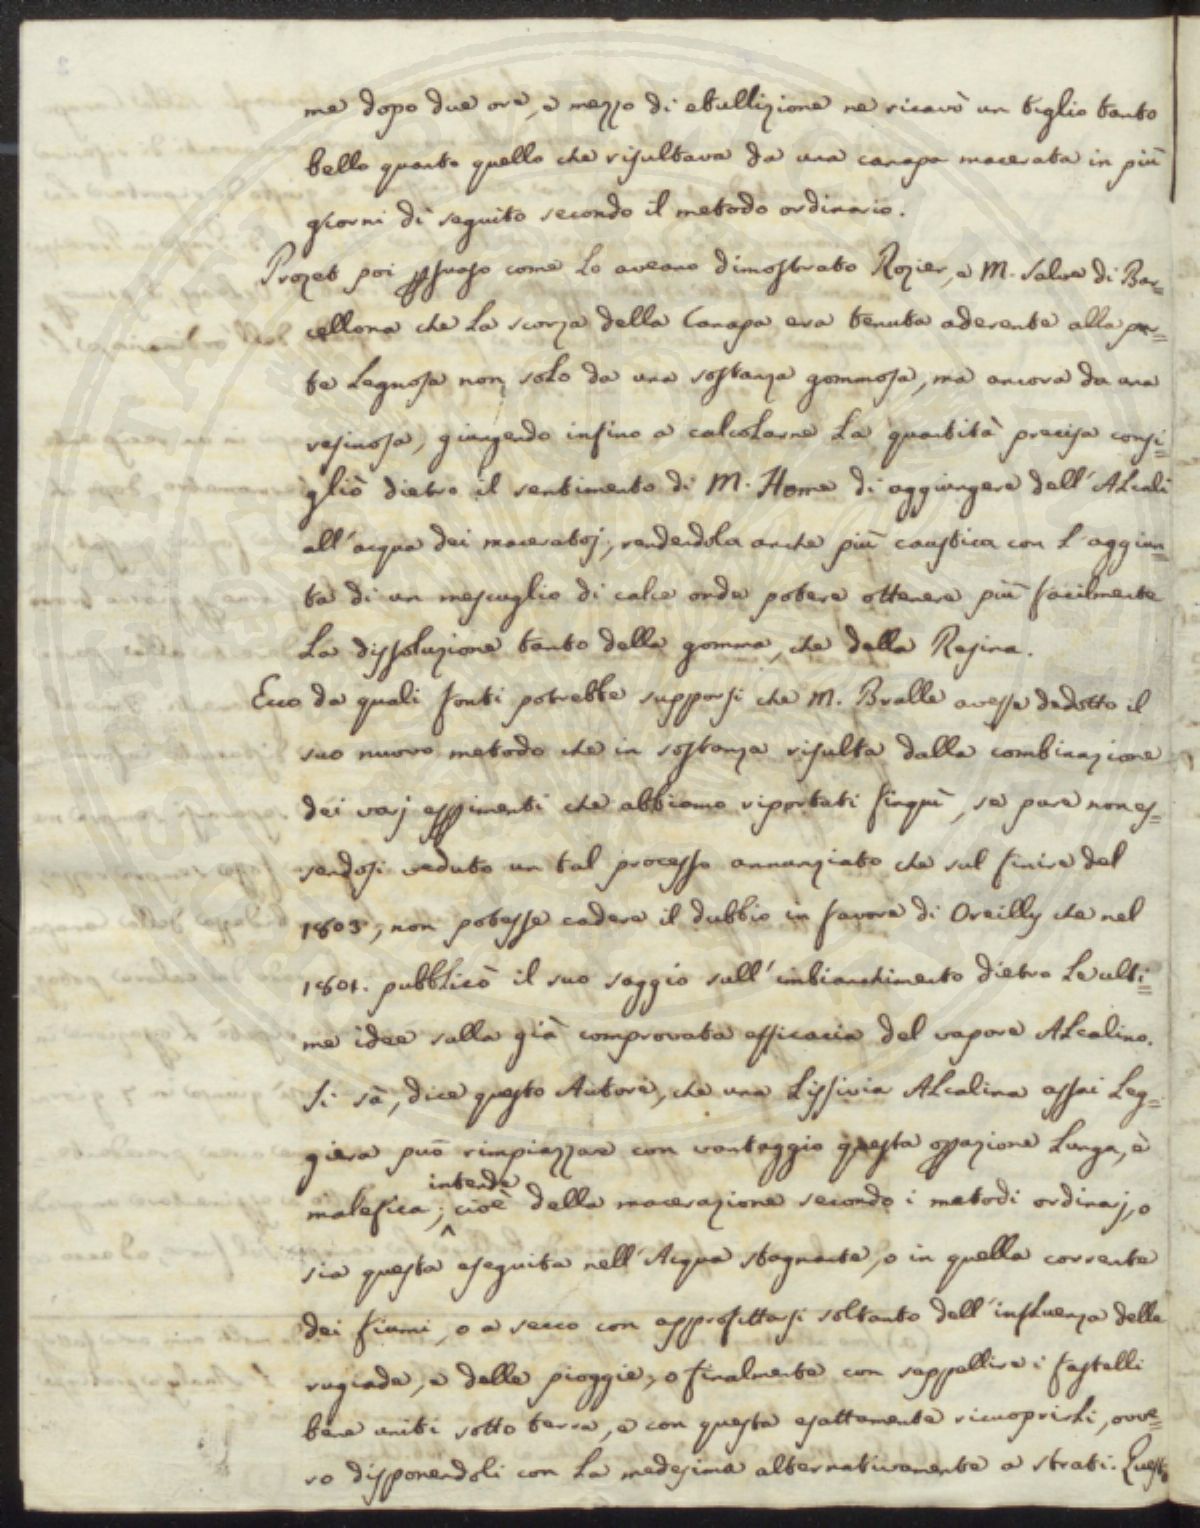 me dopo due ore, e mezzo di ebullizione ne ricavò un tiglio tanto
bello quanto quello che risultava da una canapa macerata in più
giorni di seguito secondo il metodo ordinario.
Prozet poi psuaso come lo aveano dimostrato Rozier, e M. Salva di Bar=
cellona che la scorza della Canapa era tenuta aderente alla par=
te legnosa non solo da una sostanza gommosa, ma ancora da una
resinosa, giungendo infino a calcolarne la quantità precisa consi=
gliò dietro il sentimento di M. Home di aggiungere dell'Alcali
all'acqua dei maceratoj, rendendola anche più caustica con l'aggiun=
ta di un mescuglio di calce onde potere ottenere più facilmente
la dissoluzione tanto della gomma, che della Resina.
Ecco da quali fonti potrebbe supporsi che M. Bralle avesse dedotto il
suo nuovo metodo che in sostanza risulta dalla combinazione
dei varj espimenti che abbiamo riportati finquì, se pure non es=
sendosi veduto un tal processo annunziato che sul finire del
1803, non potesse cadere il dubbio in favore di Oreilly che nel
1801. pubblicò il suo saggio sull'imbianchimento dietro le ulti=
me idee sulla già comprovata efficacia del vapore Alcalino.
Si sà, dice questo Autore, che una Lissivia Alcalina assai leg=
giera può rimpiazzare con vantaggio questa opazione lunga, e
malefica; intende cioè della macerazione secondo i metodi ordinarj, o
sia questa eseguita nell'Acqua stagnante, o in quella corrente
dei fiumi, o a secco con approfittarsi soltanto dell'influenza delle
rugiade, e delle pioggie, o finalmente con seppellire i fastelli
bene uniti sotto terra, e con questa esattamente ricuoprirli, ovve=
ro disponendoli con la medesima alternativamente a strati. Questo